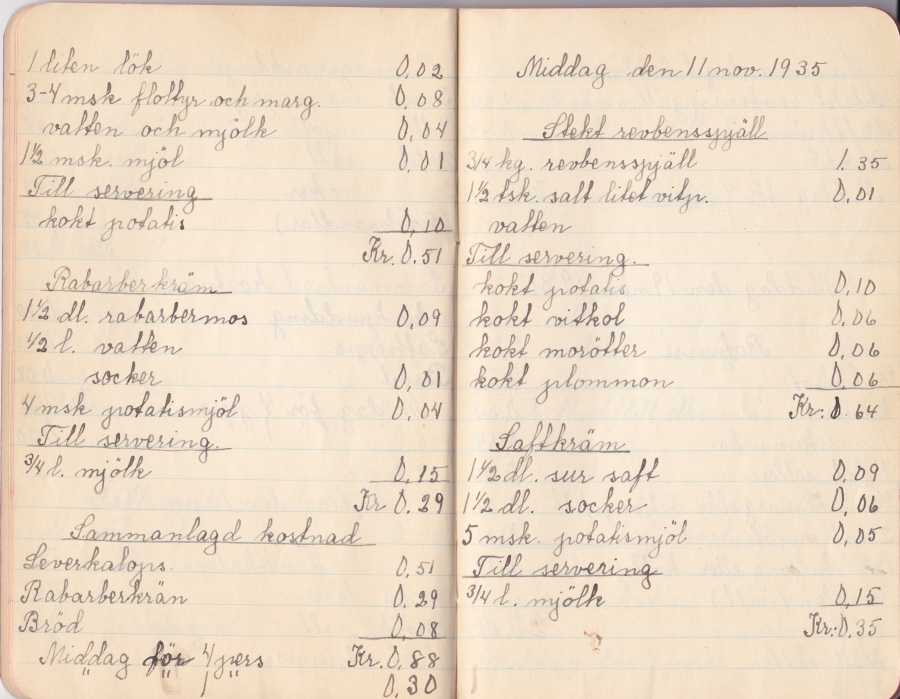 1 liten lök 0,02
3-4 msk flottyr och marg. 0,08
vatten och mjölk 0,04
1½ msk. mjöl 0,01
Till servering
kokt potatis 0,10
Kr. 0.51
Rabarberkräm
1½ dl. rabarbermos 0,09
½ l. vatten
socker 0,01
4 msk potatismjöl 0,04
Till servering.
¾ l. mjölk 0,15
Kr 0.29
Sammanlagd kostnad
Leverkalops 0,51
Rabarberkrän 0.29
Bröd 0,08
Middag för 4 pers Kr. 0,88
" " 1 " 0,30
Middag den 11 nov. 1935
Stekt revbensspjäll
3/4 kg. revbensspjäll 1.35
1½ tsk. salt litet vitp. 0,01
vatten
Till servering.
kokt potatis 0,10
kokt vitkol 0.06
kokt morötter 0,06
kokt plommon 0,06
Kr: 0.64
Saftkräm
1½ dl. sur saft 0,09
1½ dl. socker 0,06
5 msk. potatismjöl 0,05
Till servering
¾ l. mjölk 0,15
Kr: 0,35